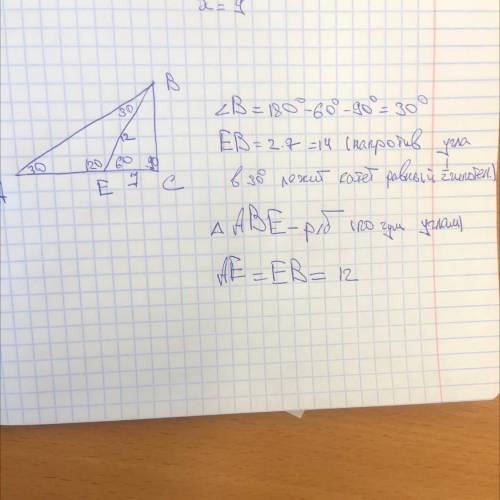 x = 7
B
30
2
30
120
60
90
A
E
7
C
∠B = 180° - 60° - 90° = 30°
EB = 2·7 = 14 (напротив угла
в 30° лежит катет равный ½ гипотен.)
△ ABE - р/б (по двум углам)
AE = EB = 12